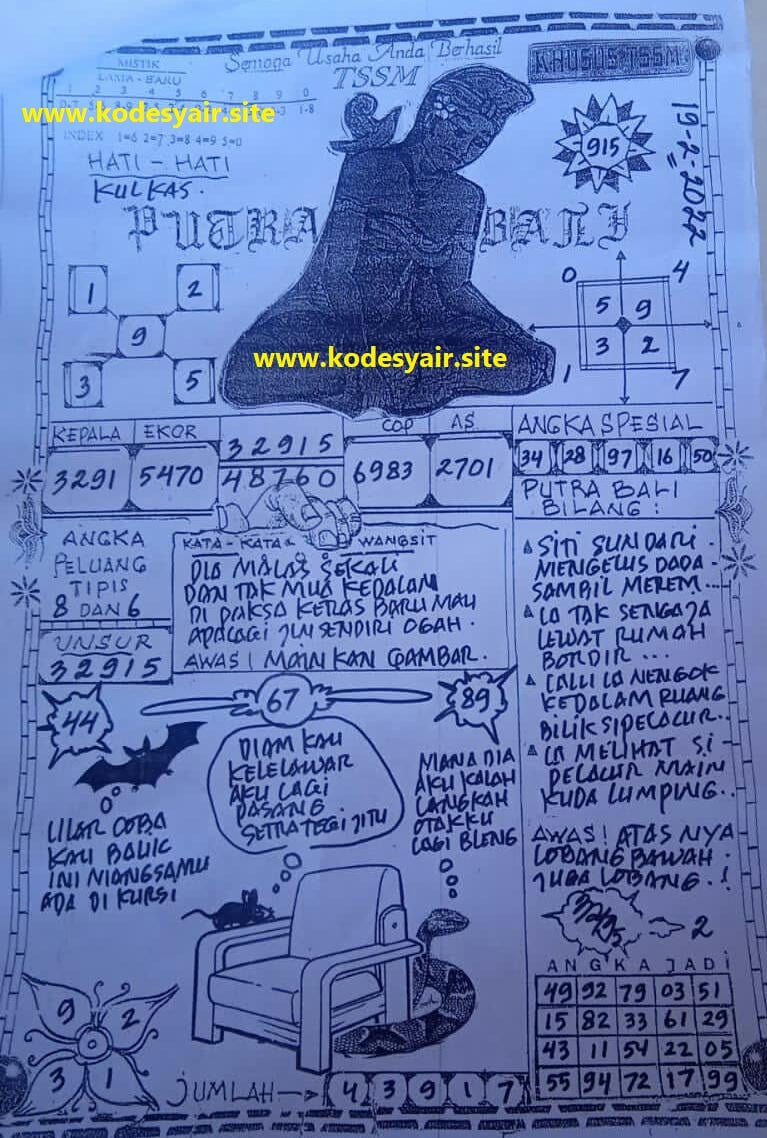 MISTIK
LAMA - BARU
1 2 3 4 5 6 7 8 9 0
1-8
www.kodesyair.site
INDEX 1=6 2=7 3=8 4=9 5=0
HATI - HATI
KULKAS.
Semoga Usaha Anda Berhasil
TSSM
KHUSUS TSSM
915
19-2-2022
PUTRA BALI
1 2
9
3 5
www.kodesyair.site
0 4
5 9
3 2
1 7
KEPALA EKOR 32915 COP AS
3291 5470 48760 6983 2701
ANGKA SPESIAL
34 28 97 16 50
ANGKA
PELUANG
TIPIS
8 DAN 6
UNSUR
32915
KATA - KATA WANGSIT
DIA MALAS SEKALI
DAN TAK MUA KEDALAM
DI PAKSA KERAS BARU MAU
APALAGI SENDIRI OGAH.
AWAS! MAIN KAN GAMBAR.
PUTRA BALI
BILANG :
SITI SUNDARI
MENGELUS DADA
SAMBIL MEREM...
IA TAK SENGAJA
LEWAT RUMAH
BORDIR ...
LALU IA NENGOK
KEDALAM RUANG
BILIK SIPELACUR..
IA MELIHAT SI
PELACUR MAIN
KUDA LUMPING..
AWAS! ATAS NYA
LOBANG BAWAH
JUGA LOBANG.!
44
67
89
ULAR COBA
KAU BALIK
INI MANGSAMU
ADA DI KURSI
DIAM KAU
KELELAWAR
AKU LAGI
PASANG
SETRATEGI JITU
MANA DIA
AKU KALAH
LANGKAH
OTAKKU
LAGI BLENG
2
ANGKA JADI
49 92 79 03 51
15 82 33 61 29
43 11 54 22 05
55 94 72 17 99
9 2
3 1
JUMLAH 4 3 9 1 7